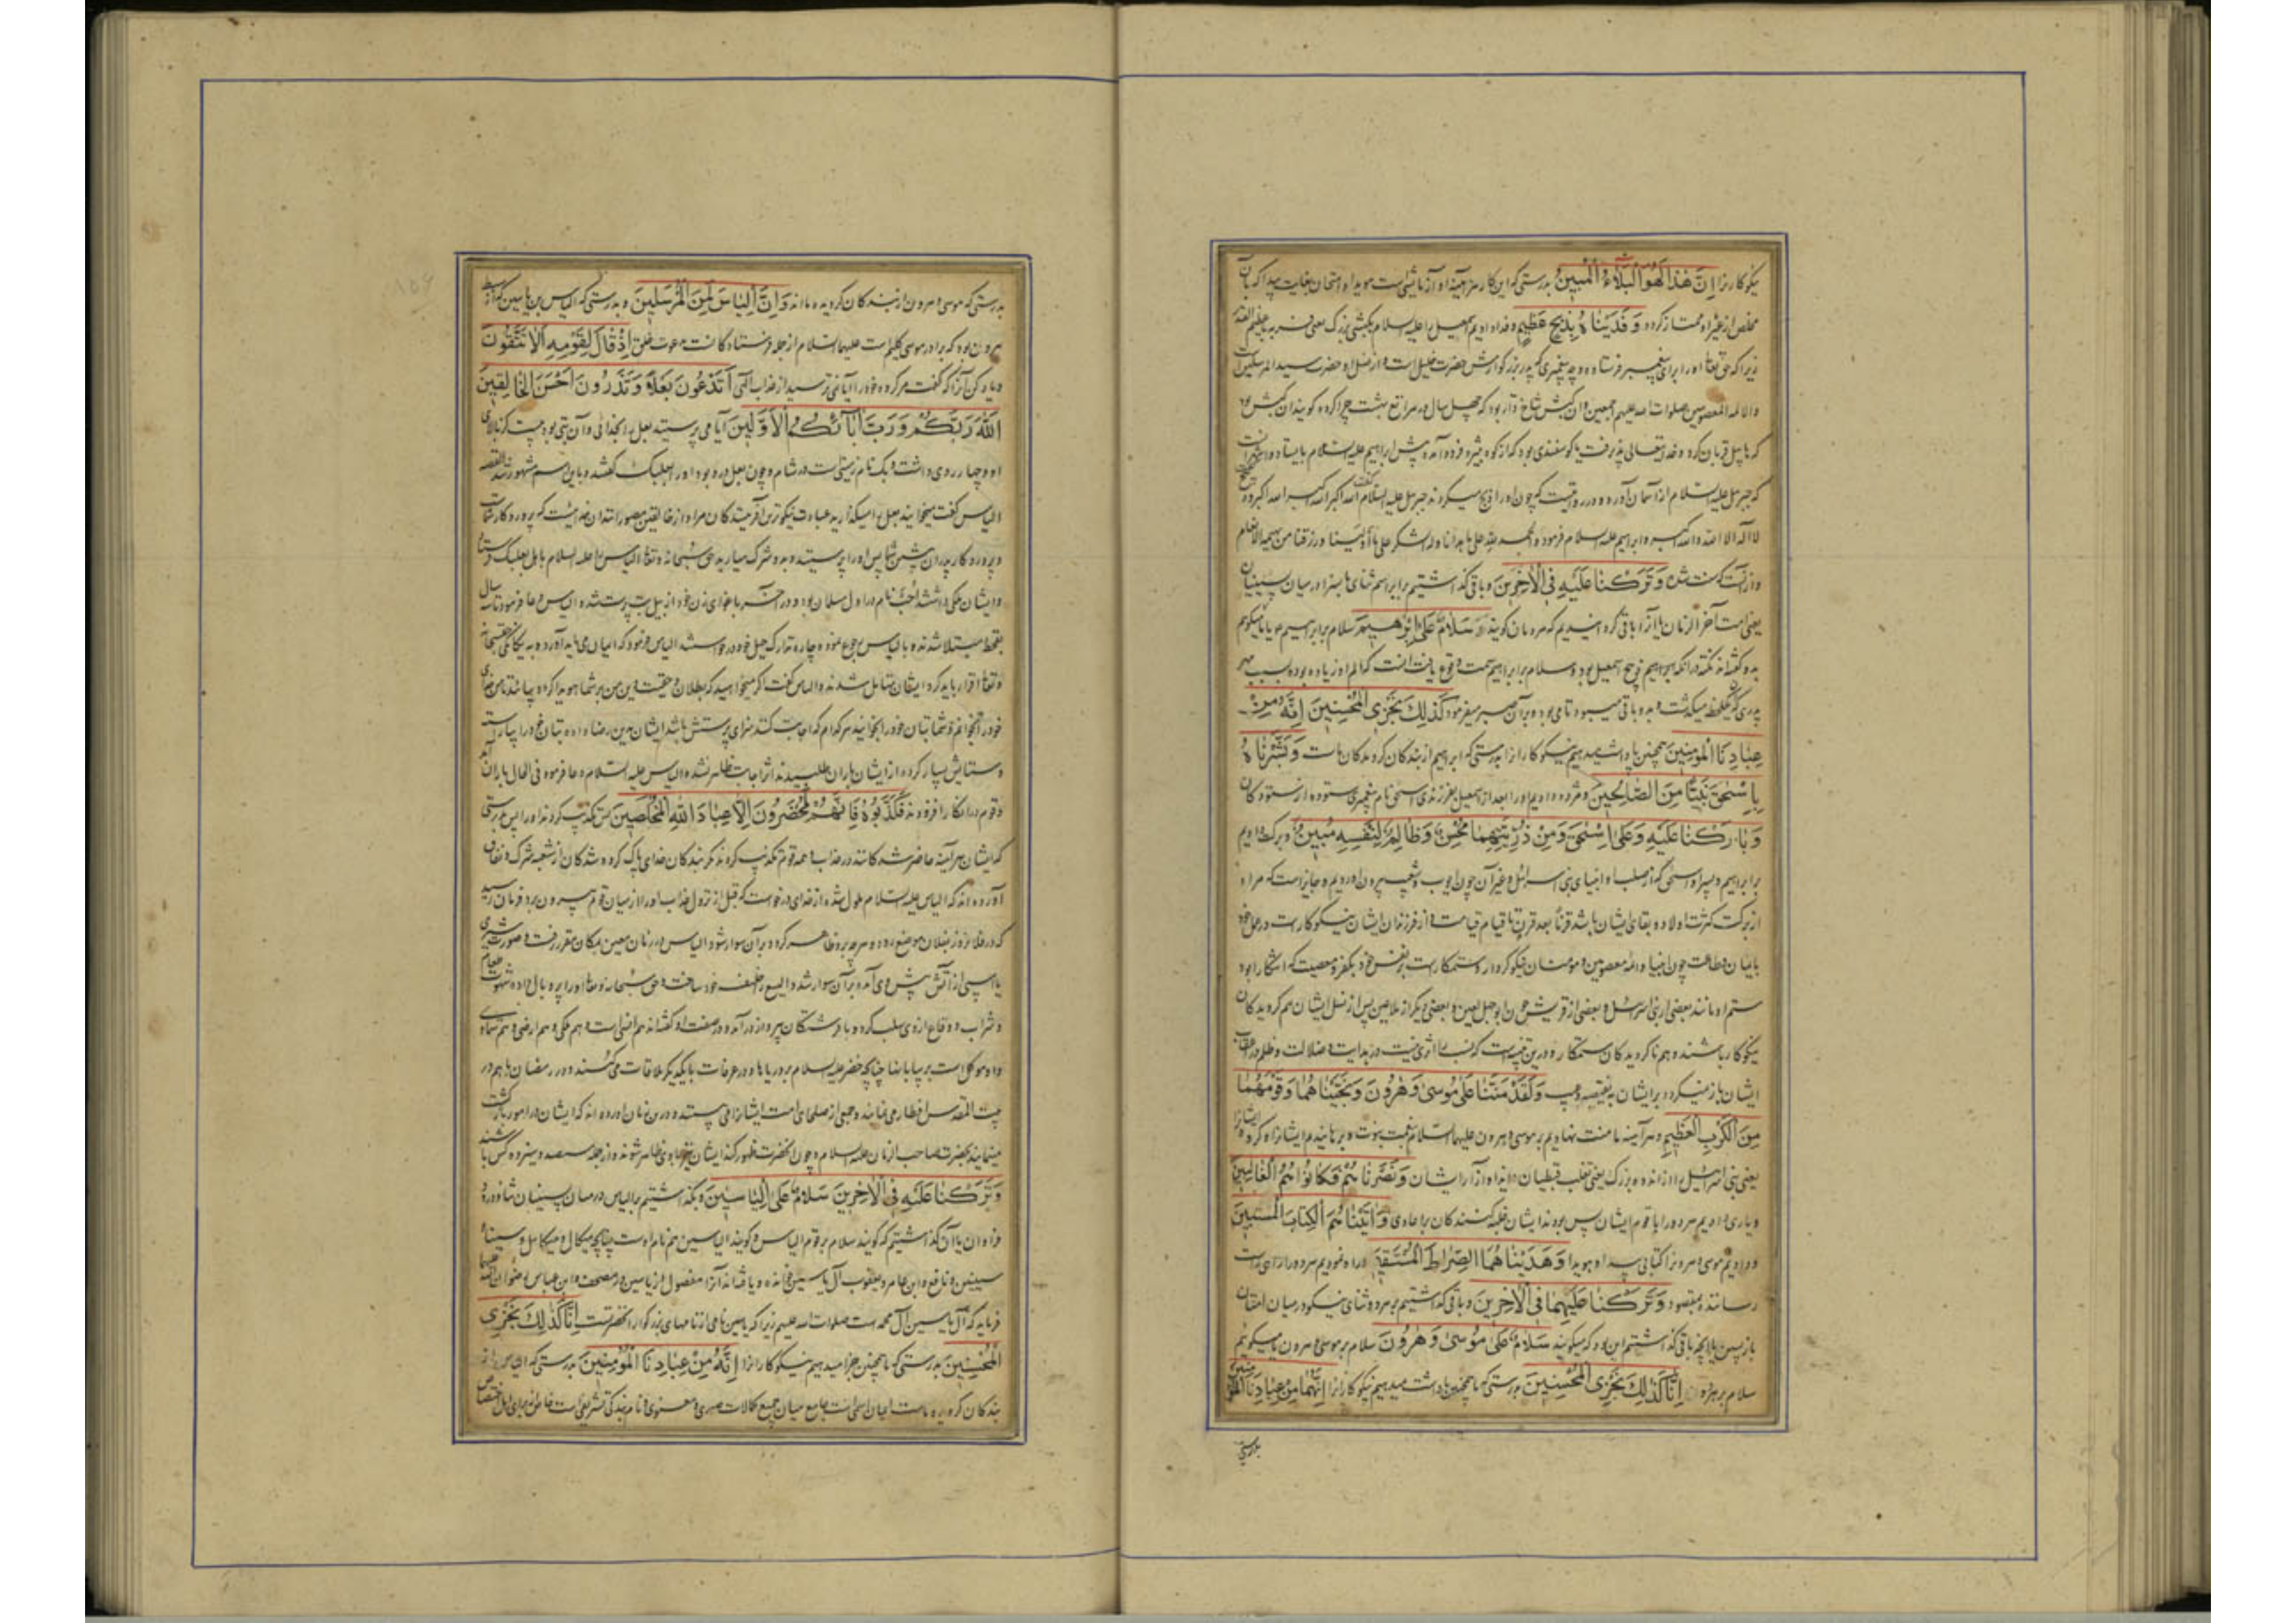 نیکوکارانرا إِنَّ هٰذَا لَهُوَ الْبَلَاءُ الْمُبِينُ بدرستی که این کار هر آینه او آزمایشی است هویدا و امتحان بغایت پیدا که بآن
مخلص از غیر او ممتاز کردد وَفَدَيْنَاهُ بِذِبْحٍ عَظِيمٍ و فدا دادیم اسمعیل را علیه السلام بکبشی بزرک یعنی فربه یا عظیم القدر
زیرا که حق تعالی او را برای پیغمبر فرستاده و چه پیغمبری که پدر بزرکوارش حضرت خلیل است و از نسل او حضرت سید المرسلین است
والائمه المعصومین صلوات الله علیهم اجمعین و آن کبش شاخ دار بود که چهل سال در مراتع بهشت چرا کرده کویند آن کبش بود
که هابیل قربان کرد و خدایتعالی پذیرفت یا کوسفندی بود که از کوه ثبیر فرود آمده پیش ابراهیم علیه السلام بایستاد
که جبرئیل علیه السلام از آسمان آورده و در روایتست که چون او را ذبح میکردند جبرئیل علیه السلام گفت الله اکبر الله اکبر الله اکبر و ذبیح
لا اله الا الله والله اکبر و ابراهیم علیه السلام فرمود والحمد لله علی ما هدانا وله الشکر علی ما اولینا ورزقنا من بهیمة الانعام
وَتَرَكْنَا عَلَيْهِ فِي الْآخِرِينَ و باقی گذاشتیم بر ابراهیم ثنای بسزا در میان پسینیان
یعنی امت آخر الزمان یا آنرا باقی گردانیدیم که مردمان کویند سَلَامٌ عَلَىٰ إِبْرٰهِيمَ سلام بر ابراهیم و یا ما میکویم
بدو کفته اند نکته در آنکه ابراهیم ذبح اسمعیل بود و سلام بر ابراهیم سمت وقوع یافت آنست که الم او زیاده بوده بسبب مهر
پدری میکذشت و بدو باقی میبود و بر آن صبر میفرمود كَذٰلِكَ نَجْزِي الْمُحْسِنِينَ إِنَّهُ مِنْ
عِبَادِنَا الْمُؤْمِنِينَ همچنین پاداش میدهیم نیکوکارانرا بدرستی که ابراهیم از بندکان کرویدکان ماست وَبَشَّرْنَاهُ
بِإِسْحٰقَ نَبِيًّا مِنَ الصَّالِحِينَ و مژده دادیم او را بعد از اسمعیل بفرزندی اسحق نام پیغمبری ستوده از ستودکان
وَبَارَكْنَا عَلَيْهِ وَعَلَىٰ إِسْحٰقَ وَمِنْ ذُرِّيَّتِهِمَا مُحْسِنٌ وَظَالِمٌ لِنَفْسِهِ مُبِينٌ و برکت دادیم
بر ابراهیم و پسر او اسحق که از صلب او انبیای بنی اسرائیل و غیر آن چون ایوب و شعیب بیرون آوردیم و جایز است که مراد
از برکت کثرت اولاد و بقای ایشان باشد قرناً بعد قرنٍ تا قیام قیامت و از فرزندان ایشان نیکوکار است در عمل خود
بایمان و طاعت چون انبیا و ائمه معصومین و مؤمنان نیکو کردار و ستمکار است بر نفس خود بکفر و معصیت که آشکارا بود
ستم او مانند بعضی از بنی اسرائیل و بعضی از قریش چون ابوجهل لعین و بعضی دیکر از ملاعین پس از نسل ایشان هم کرویدکان
نیکوکار باشند و هم ناکرویدکان ستمکار و درین تنبیه است که نسب را اثری نیست در هدایت و ضلالت و ظلم در اعقاب
ایشان باز نمیکردد بر ایشان بنقیصه و عیب وَلَقَدْ مَنَنَّا عَلَىٰ مُوسَىٰ وَهٰرُونَ وَنَجَّيْنَاهُمَا وَقَوْمَهُمَا
مِنَ الْكَرْبِ الْعَظِيمِ و هر آینه ما منت نهادیم بر موسی و هرون علیهما السلام بنعمت نبوت و برهانیدیم ایشانرا و کروه ایشانرا
یعنی بنی اسرائیل را از اندوه بزرک یعنی تغلب قبطیان و ایذاء و آزار ایشان وَنَصَرْنَاهُمْ فَكَانُوا هُمُ الْغَالِبِينَ
و یاری دادیم هر دو را با قوم ایشان پس بودند ایشان غلبه کنندکان بر اعادی وَآتَيْنَاهُمَا الْكِتَابَ الْمُسْتَبِينَ
و دادیم موسی و هرونرا کتابی پیدا و هویدا وَهَدَيْنَاهُمَا الصِّرَاطَ الْمُسْتَقِيمَ و راه نمودیم هر دو را براه راست
رساننده بمقصود وَتَرَكْنَا عَلَيْهِمَا فِي الْآخِرِينَ و باقی گذاشتیم بر هر دو ثنای نیکو در میان امتان
بازپسین یا آنچه باقی گذاشتیم این بود که میکویند سَلَامٌ عَلَىٰ مُوسَىٰ وَهٰرُونَ سلام بر موسی و هرون یا میکوئیم
سلام بر هر دو إِنَّا كَذٰلِكَ نَجْزِي الْمُحْسِنِينَ بدرستی که ما همچنین پاداشت میدهیم نیکوکارانرا إِنَّهُمَا مِنْ عِبَادِنَا الْمُؤْمِنِينَ
بدرستی
بدرستی که موسی و هرون از بندکان کرویده ما اند وَإِنَّ إِلْيَاسَ لَمِنَ الْمُرْسَلِينَ و بدرستی که الیاس بن یاسین که از سبط
هرون بود که برادر موسی کلیم است علیهما السلام از جمله فرستادکانست بدعوت خلق إِذْ قَالَ لِقَوْمِهِ أَلَا تَتَّقُونَ
و یاد کن آنرا که کفت مر کروه خود را آیا نمی ترسید از عذاب الهی أَتَدْعُونَ بَعْلًا وَتَذَرُونَ أَحْسَنَ الْخَالِقِينَ
اللَّهَ رَبَّكُمْ وَرَبَّ آبَائِكُمُ الْأَوَّلِينَ آیا می پرستید بعل را بخدائی و آن بتی بود بیست کز بالای
او و چهار روی داشت و بک نام زمینی است در شام و چون بعل درو بود او را بعلبک کفتند و باین اسم مشهور شد القصه
الیاس کفت میخوانید بعل را و میکذارید عبادت نیکوترین آفرینندکان مراد از خالقین مصورانند آن خدائیست که پروردکار شماست
و پروردکار پدران پیشین شما پس او را پرستید و بدو شرک میارید حق سبحانه و تعالی الیاس را علیه السلام باهل بعلبک فرستاد
و ایشان ملکی داشتند احب نام در اول مسلمان بود و در آخر باغوای زن خود ازبیل بت پرست شده الیاس دعا فرمود تا سه سال
بقحط مبتلا شدند و بالیاس رجوع نموده چاره تدارک جهل خود درخواستند الیاس فرمود که ایمان می باید آورد و به یکانکی حق سبحانه
و تعالی اقرار باید کرد ایشان متأمل شدند و الیاس کفت اگر میخواهید که بطلان و حقیقت دین من بر شما هویدا کردد بیائید تا من خدای
خود را بخوانم و شما بتان خود را بخوانید هر کدام که اجابت کنند سزای پرستش باشد ایشان بدین رضا داده بتان خود را بیاراستند
و ستایش بسیار کرده از ایشان باران طلبیدند اثر اجابت ظاهر نشد الیاس علیه السلام دعا فرمود فی الحال باران آمد
و قوم در انکار افزودند فَكَذَّبُوهُ فَإِنَّهُمْ لَمُحْضَرُونَ إِلَّا عِبَادَ اللَّهِ الْمُخْلَصِينَ پس تکذیب کردند او را پس بدرستی
که ایشان هر آینه حاضر شدکانند در عذاب و همه قوم تکذیب کردند مکر بندکان خدای پاک کرده شدکان از شعبه شرک و نفاق
آورده اند که الیاس علیه السلام ملول شده از خدای درخواست که قبل از نزول عذاب او را از میان قوم بیرون برد فرمان رسید
که در فلان روز بفلان موضع رود و هر چه برو ظاهر کردد بر آن سوار شود الیاس در زمان معین بمکان مقرر رفت و صورت شیری
یا اسپی از آتش پیش وی آمد و بر آن سوار شد و الیسع را خلیفه خود ساخت و حق سبحانه و تعالی او را پر و بال داده شهوت طعام
و شراب و وقاع از وی سلب کرده و با فرشتکان پرواز درآمد و در صفت او کفته اند هم انسی است و هم ملکی و هم ارضی و هم سماوی
و او موکل است بر بیابانها چنانچه خضر علیه السلام بر دریاها و در عرفات با یکدیکر ملاقات می کنند و در رمضان با هم در
بیت المقدس افطار می نمایند و جمعی از صلحای امت ایشانرا می بینند
بحضرت صاحب الزمان علیه السلام و چون آنحضرت ظهور کند ایشان نیز با وی ظاهر شوند و از جمله سیصد و سیزده کس باشند
وَتَرَكْنَا عَلَيْهِ فِي الْآخِرِينَ سَلَامٌ عَلَىٰ إِلْيَاسِينَ و بگذاشتیم بر الیاس در میان پسینیان ثنا و درود
فراوان یا آن گذاشتیم که کویند سلام بر قوم الیاس و کویند الیاسین هم نام اوست چنانچه میکال و میکائیل و سیناء
سینین و نافع و ابن عامر و یعقوب آل یاسین خوانده و یافته اند آنرا مفصول از یاسین در مصحف و ابن عباس رضوان الله علیهما
فرماید که آل یاسین آل محمد است صلوات الله علیهم زیرا که یاسین نامی از نامهای بزرکوار آنحضرتست إِنَّا كَذٰلِكَ نَجْزِي
الْمُحْسِنِينَ بدرستی که ما همچنین جزا میدهیم نیکوکارانرا إِنَّهُ مِنْ عِبَادِنَا الْمُؤْمِنِينَ بدرستی که الیاس از
بندکان کرویده ماست ایمان اسمی است جامع میان جمیع کمالات صوری و معنوی و نام بندکی تشریفی است خاص از برای اهل اختصاص